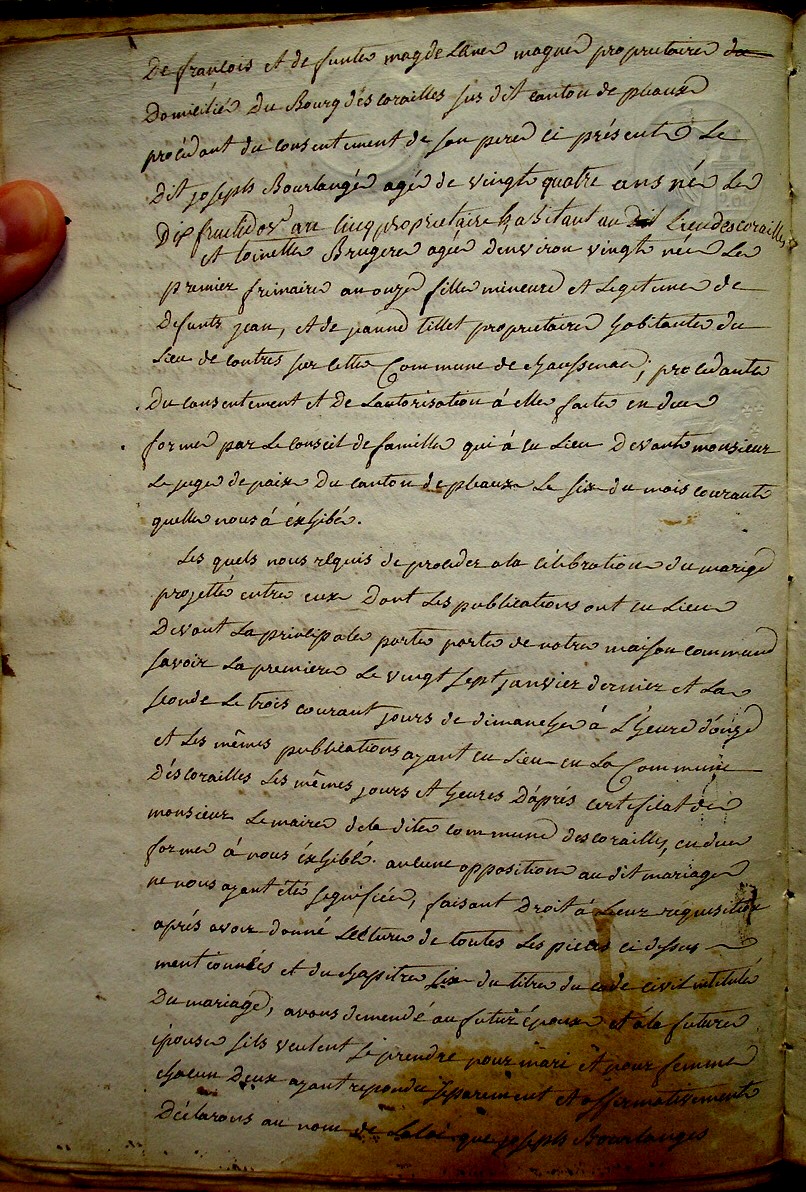 De françois et defunte magdelene magne proprietaire
Domicilié du Bourg descorailles sus dit canton de pleaux
procédant du consentement de son pere ci présent. Le
Dit joseph Bourlangé agée de vingt quatre ans née le
Dix fructidor an cinq proprietaire habitant au dit Lieu descorailles
Et toinette Brugere agée denviron vingt née Le
premier frimaire an onze fille mineure et Legitime de
Defunts jean, et de jeanne tillet proprietaire habitante du
Lieu de contres sur cette Commune de chaussenac, procédante
Du consentement et de Lautorisation à elle faite en due
forme par Le conseil de famille qui à eu Lieu Devant monsieur
Le juge de paix Du canton de pleaux Le six du mois courant
quelle nous à éxhibé.
Les quels nous requis de proceder a la célébration du mariage
projetté entre eux Dont Les publications ont eu Lieu
Devant La principale porte porte de notre maison commune
savoir La premiere Le vingt sept janvier dernier et La
seconde Le trois courant jours de dimanche à L'heure d'onze
et Les mêmes publications ayant eu Lieu en La Commune
Déscorailles Les mêmes jours et heures D'après certificat de
monsieur Le maire de la dite commune descorailles, en due
forme à nous éxhibé. aucune opposition au dit mariage
ne nous ayant été signifiée, faisant Droit à Leur réquisition
aprés avoir donné Lecture de toutes Les pieces ci dessus
mentionnées et du chapitre six du titre du code civil intitulé
Du mariage, avons demendé au futur époux et à la future
épouse sils veulent se prendre pour mari et pour femme
chacun Deux ayant repondu séparement et affirmativement
Déclarons au nom de La loi que joseph Bourlanges